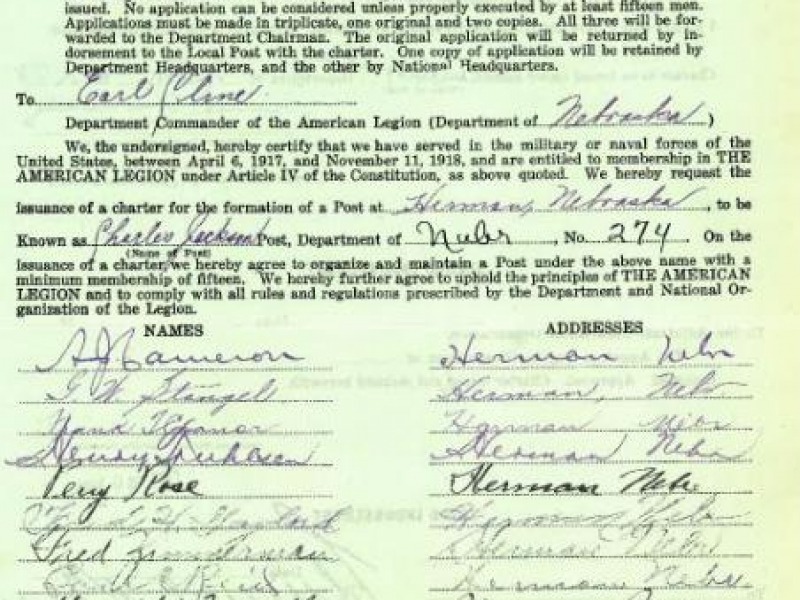 issued. No application can be considered unless properly executed by at least fifteen men.
Applications must be made in triplicate, one original and two copies. All three will be for-
warded to the Department Chairman. The original application will be returned by in-
dorsement to the Local Post with the charter. One copy of application will be retained by
Department Headquarters, and the other by National Headquarters.
To Earl Cline
Department Commander of the American Legion (Department of Nebraska)
We, the undersigned, hereby certify that we have served in the military or naval forces of the
United States, between April 6, 1917, and November 11, 1918, and are entitled to membership in THE
AMERICAN LEGION under Article IV of the Constitution, as above quoted. We hereby request the
issuance of a charter for the formation of a Post at Herman, Nebraska, to be
Known as Charles Jackson Post, Department of Nebr, No. 274. On the
(Name of Post)
issuance of a charter, we hereby agree to organize and maintain a Post under the above name with a
minimum membership of fifteen. We hereby further agree to uphold the principles of THE AMERICAN
LEGION and to comply with all rules and regulations prescribed by the Department and National Or-
ganization of the Legion.
NAMES ADDRESSES
A J Cameron Herman Nebr
Herman, Nebr.
Herman Nebr
Henry Herman Nebr
Percy Rose Herman Nebr
Herman Nebr
Fred Zimmerman Herman Nebr
Herman Nebr